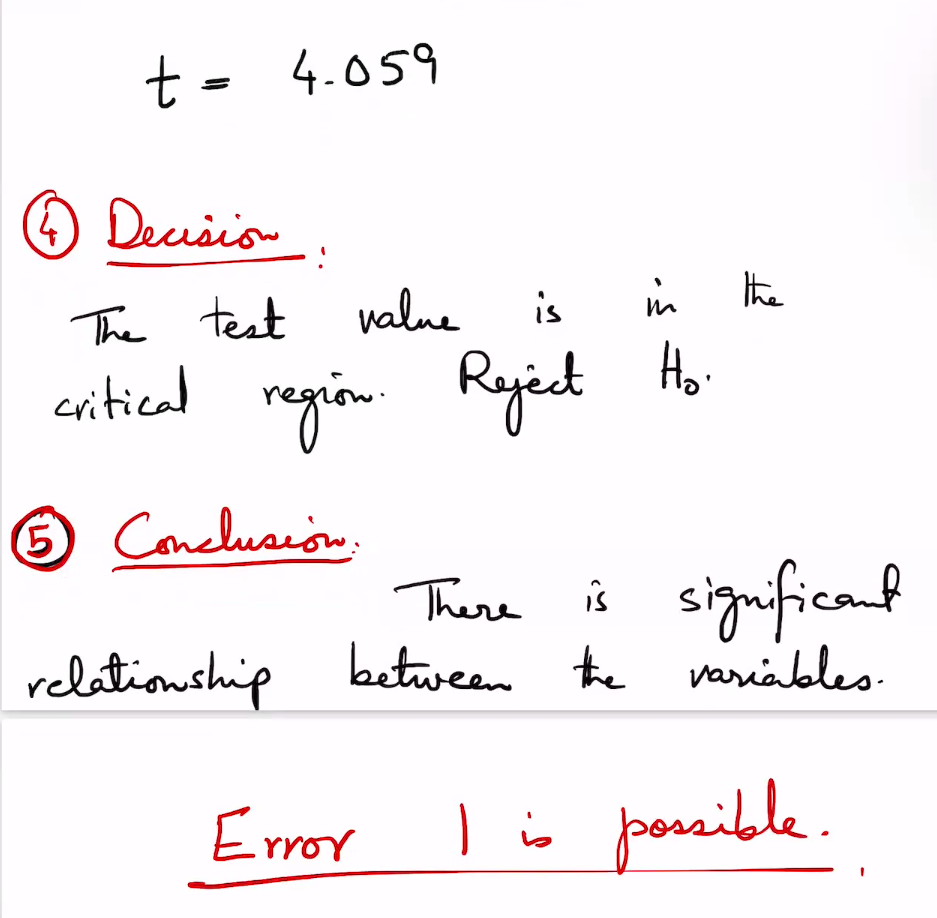 t = 4.059
④ Decision:
The test value is in the
critical region. Reject H₀.
⑤ Conclusion:
There is significant
relationship between the variables.
Error 1 is possible.